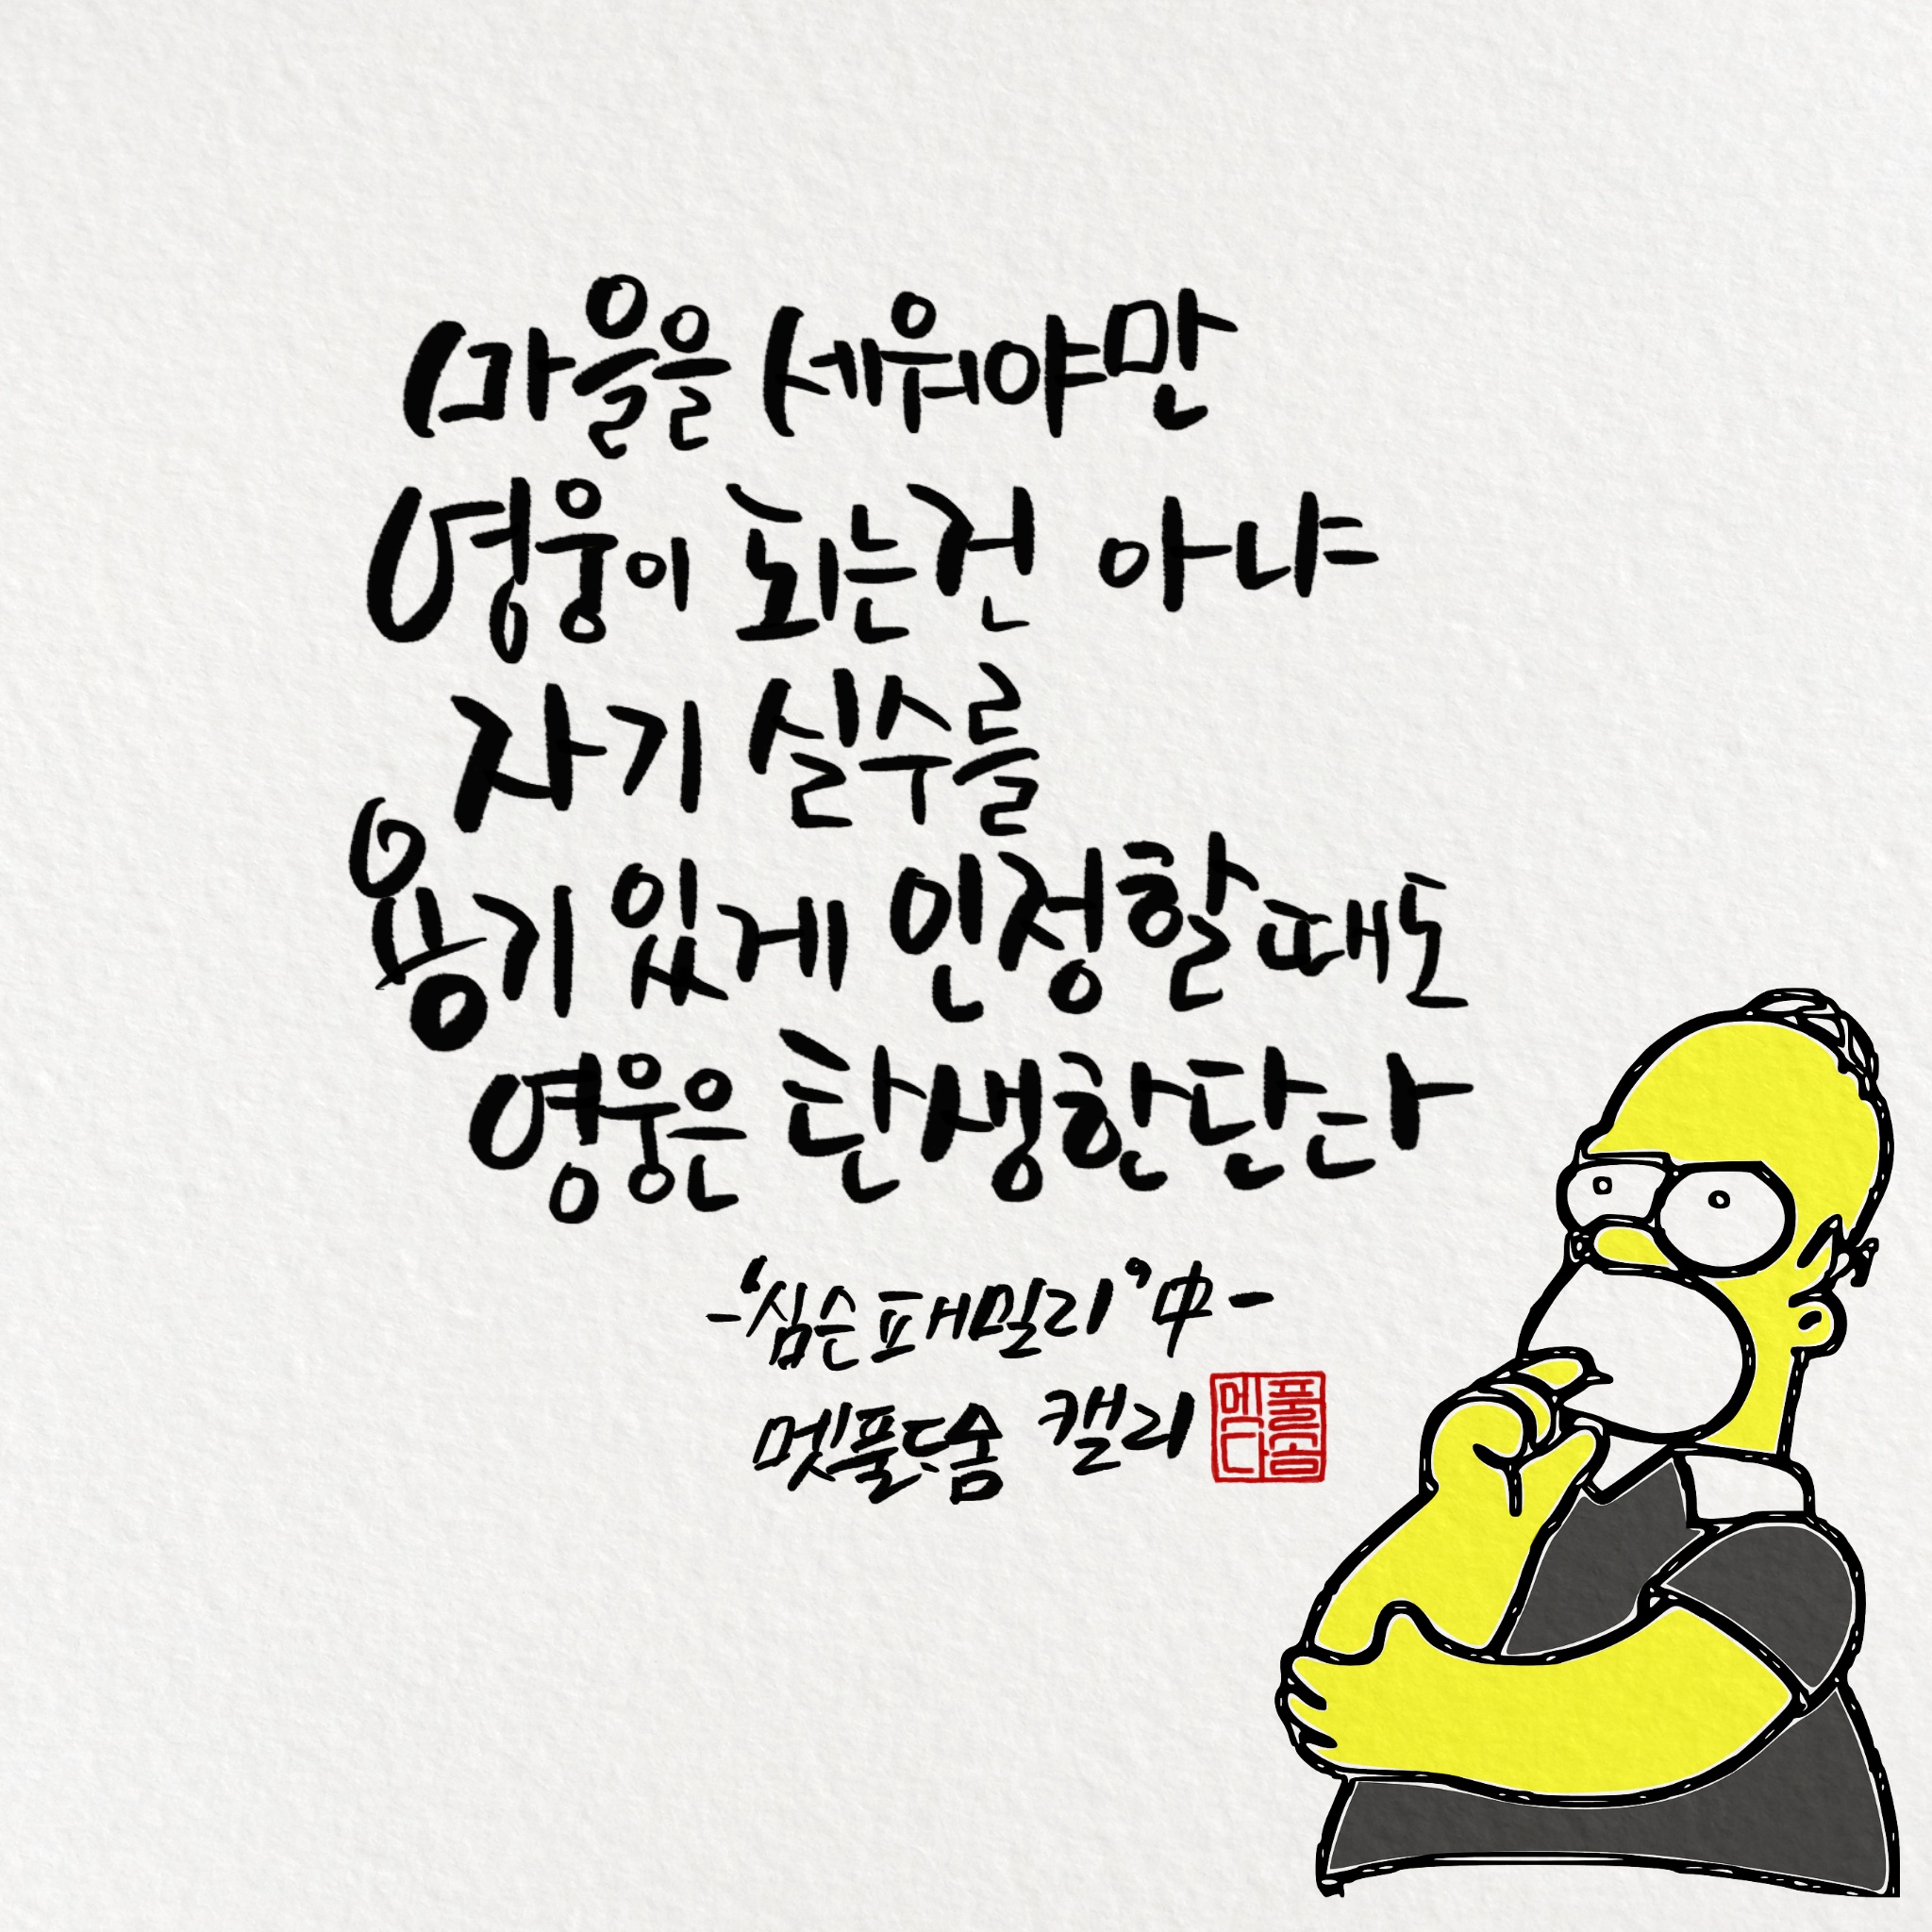 마을을 세워야만
영웅이 되는건 아냐
자기 실수를
용기 있게 인정할때도
영웅은 탄생한단다
-'심슨패밀리'中-
멧풀다솜 캘리
멧풀다솜